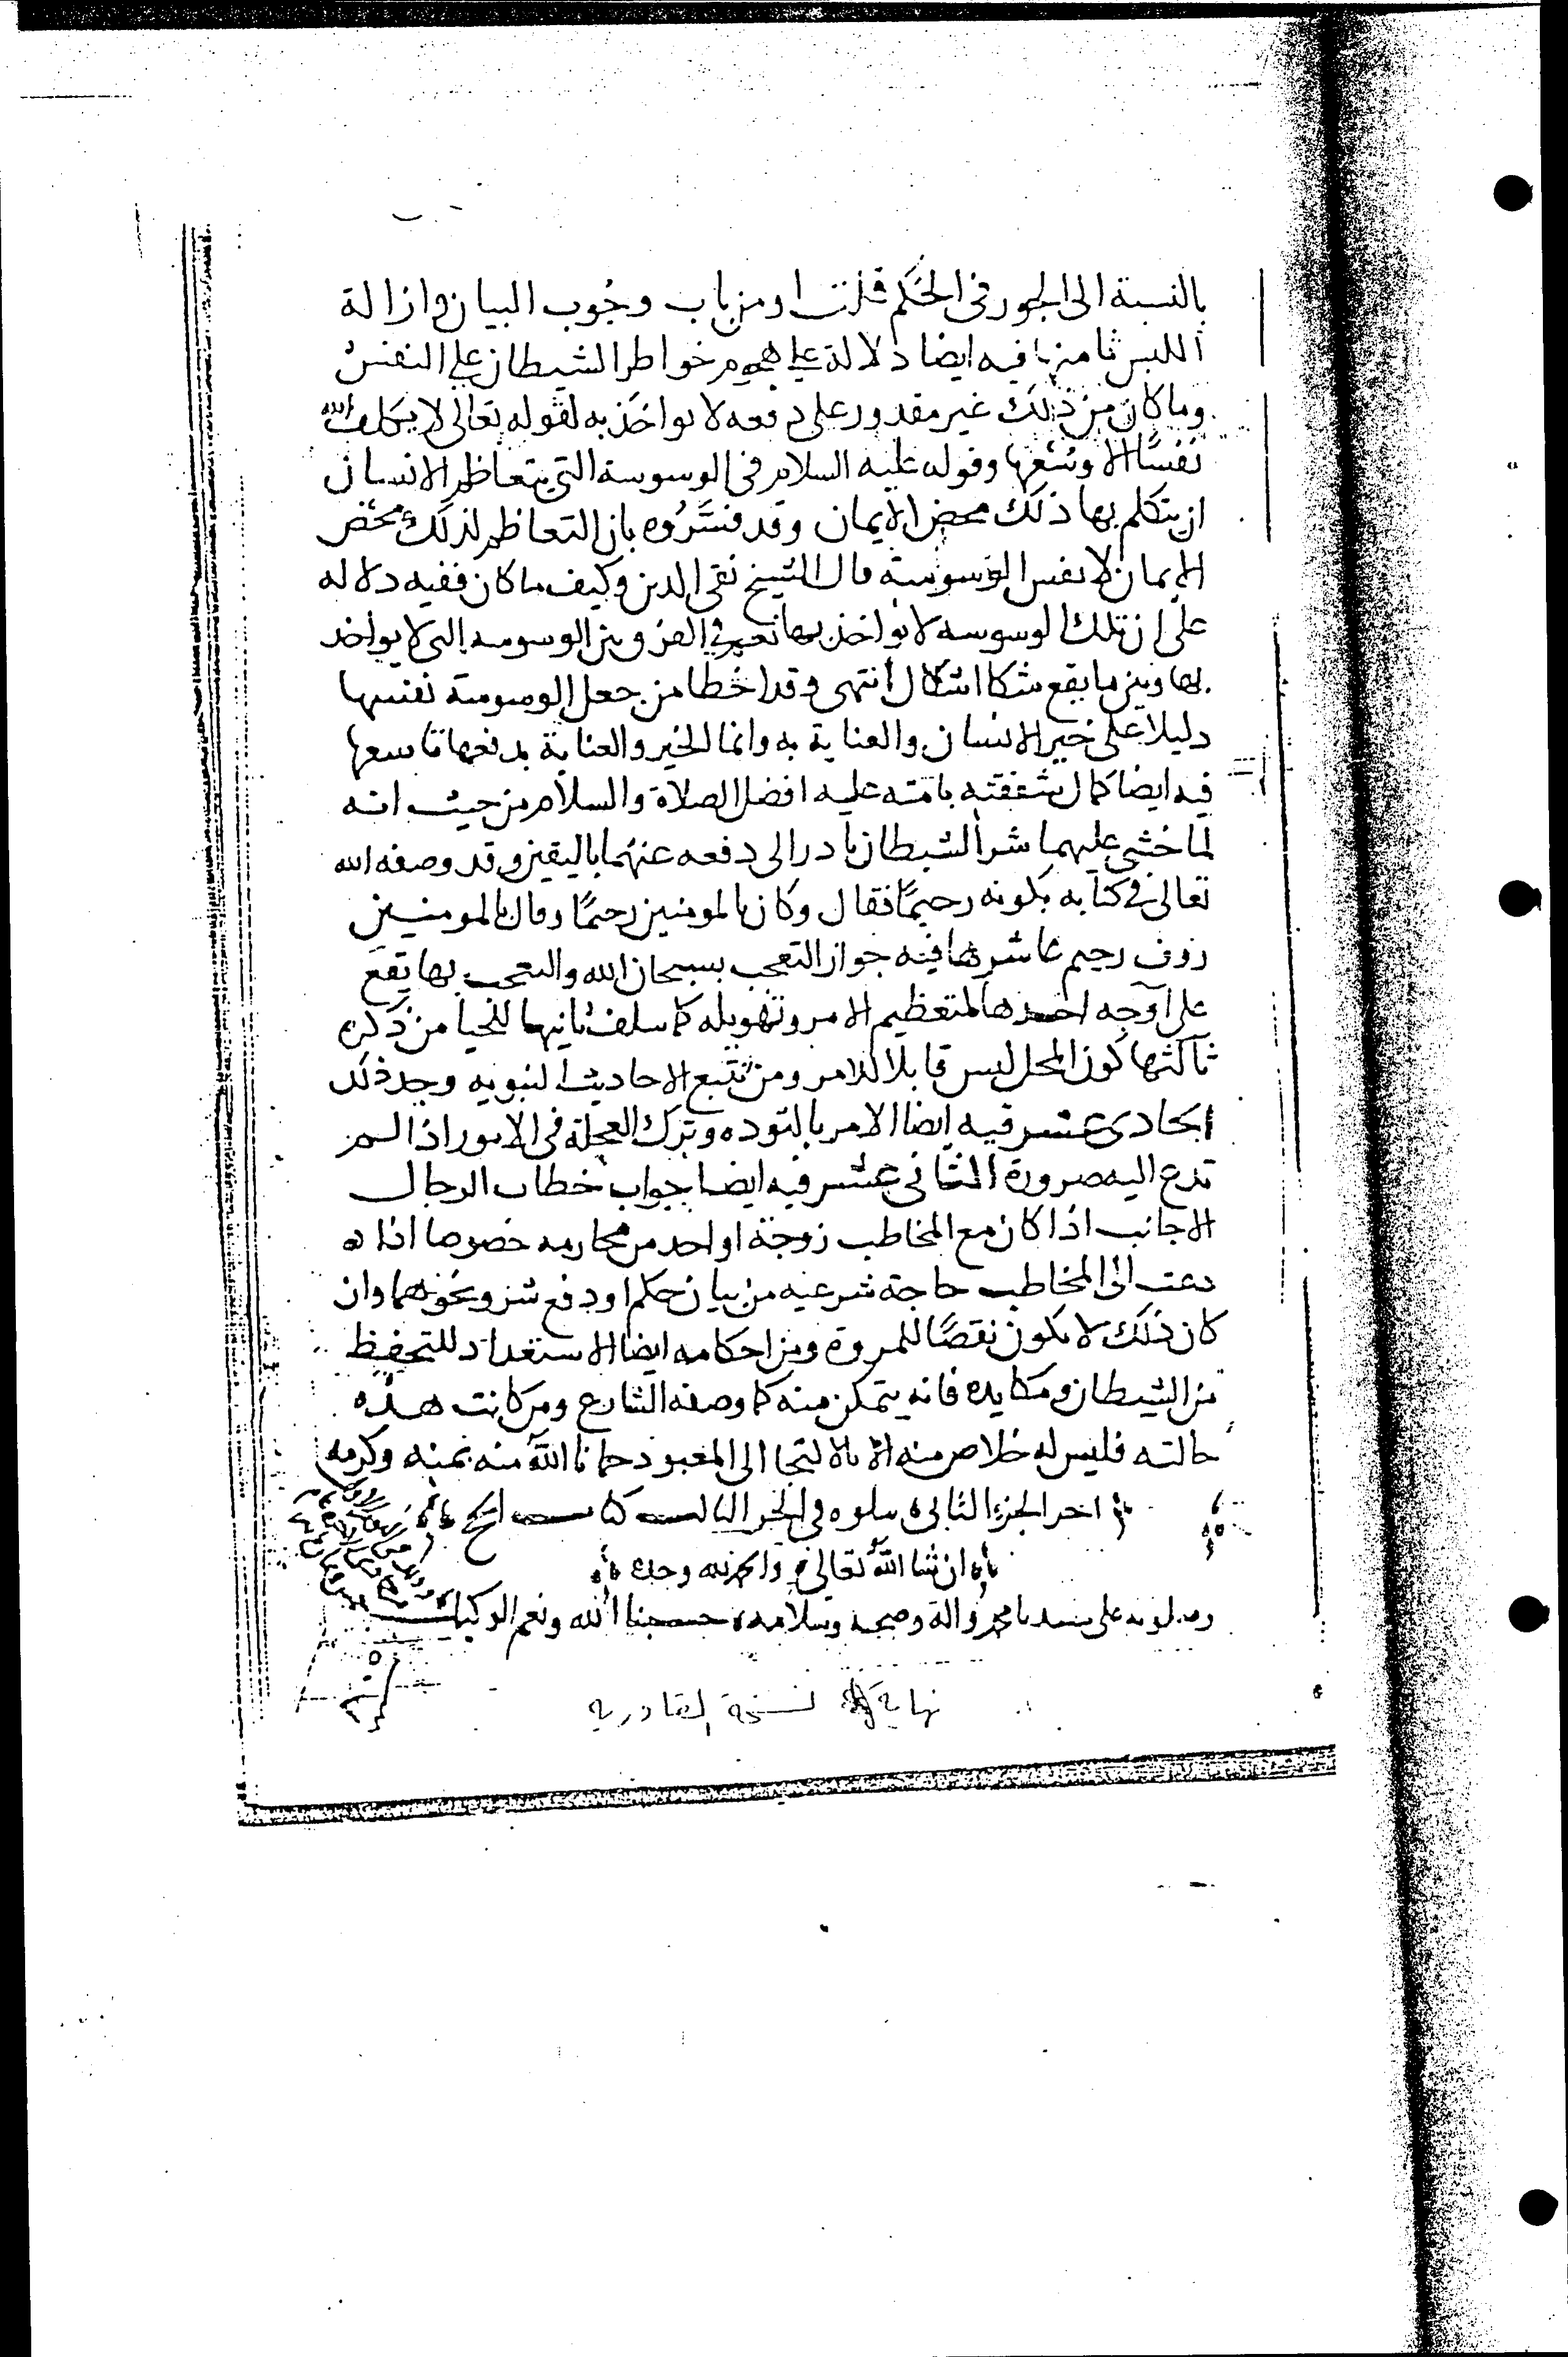 بالنسبة الى الجور فى الحكم قلت او من باب وجوب البيان وازالة
اللبس ثامنها فيه ايضا دلالة على هجوم خواطر الشيطان على النفس
وما كان من ذلك غير مقدور على دفعه لا يواخذ به لقوله تعالى لا يكلف الله
نفسًا الا وسعها وقوله عليه السلام فى الوسوسة التى يتعاظم الانسان
ان يتكلم بها ذلك محض الايمان وقد فسَّرُوه بان التعاظم لذلك محض
الايمان لا نفس الوسوسة قال الشيخ تقى الدين وكيف ما كان ففيه دلاله
على ان تلك الوسوسه لا يواخذ بها نعم فى الفرق بين الوسوسه التى لا يواخذ
بها وبين ما يقع شكا اشكال انتهى وقد اخطا من جعل الوسوسة نفسها
دليلا على خير الانسان والعناية به وانما الخير والعناية بدفعها تاسعها
فيه ايضا كمال شفقته بامته عليه افضل الصلاة والسلام من حيث انه
لما خشى عليهما شر الشيطان بادر الى دفعه عنهما باليقين وقد وصفه الله
تعالى فى كتابه بكونه رحيمًا فقال وكان بالمومنين رحيمًا وقال بالمومنين
رؤف رحيم عاشرها فيه جواز التعجب بسبحان الله والتعجب بها يقع
على اوجه احدها لتعظيم الامر وتهويله كما سلف ثانيها للحيا من ذكره
ثالثها كون المحل ليس قابلا للامر ومن تتبع الاحاديث النبويه وجد ذلك
الحادى عشر فيه ايضا الامر بالتوده وترك العجلة فى الامور اذا لم
تدع اليه ضرورة الثانى عشر فيه ايضا جواب خطاب الرجال
الاجانب اذا كان مع المخاطب زوجة او احد من محارمه خصوصا اذا
دعت الى المخاطب حاجة شرعيه من بيان حكم او دفع شر ونحوهما وان
كان ذلك لا يكون نقصًا للمروة ومن احكامه ايضا الاستعداد للتحفظ
من الشيطان ومكايده فانه يتمكن منه كما وصفه الشارع ومن كانت هذه
حالته فليس له خلاص منه الا بالالتجا الى المعبود حمانا الله منه بمنه وكرمه
اخر الجزء الثانى يتلوه فى الجزء الثالث كتاب الحج
ان شا الله تعالى والحمد لله وحده
وصلوته على سيدنا محمد واله وصحبه وسلامه حسبنا الله ونعم الوكيل
نهاية نسخة القادرية